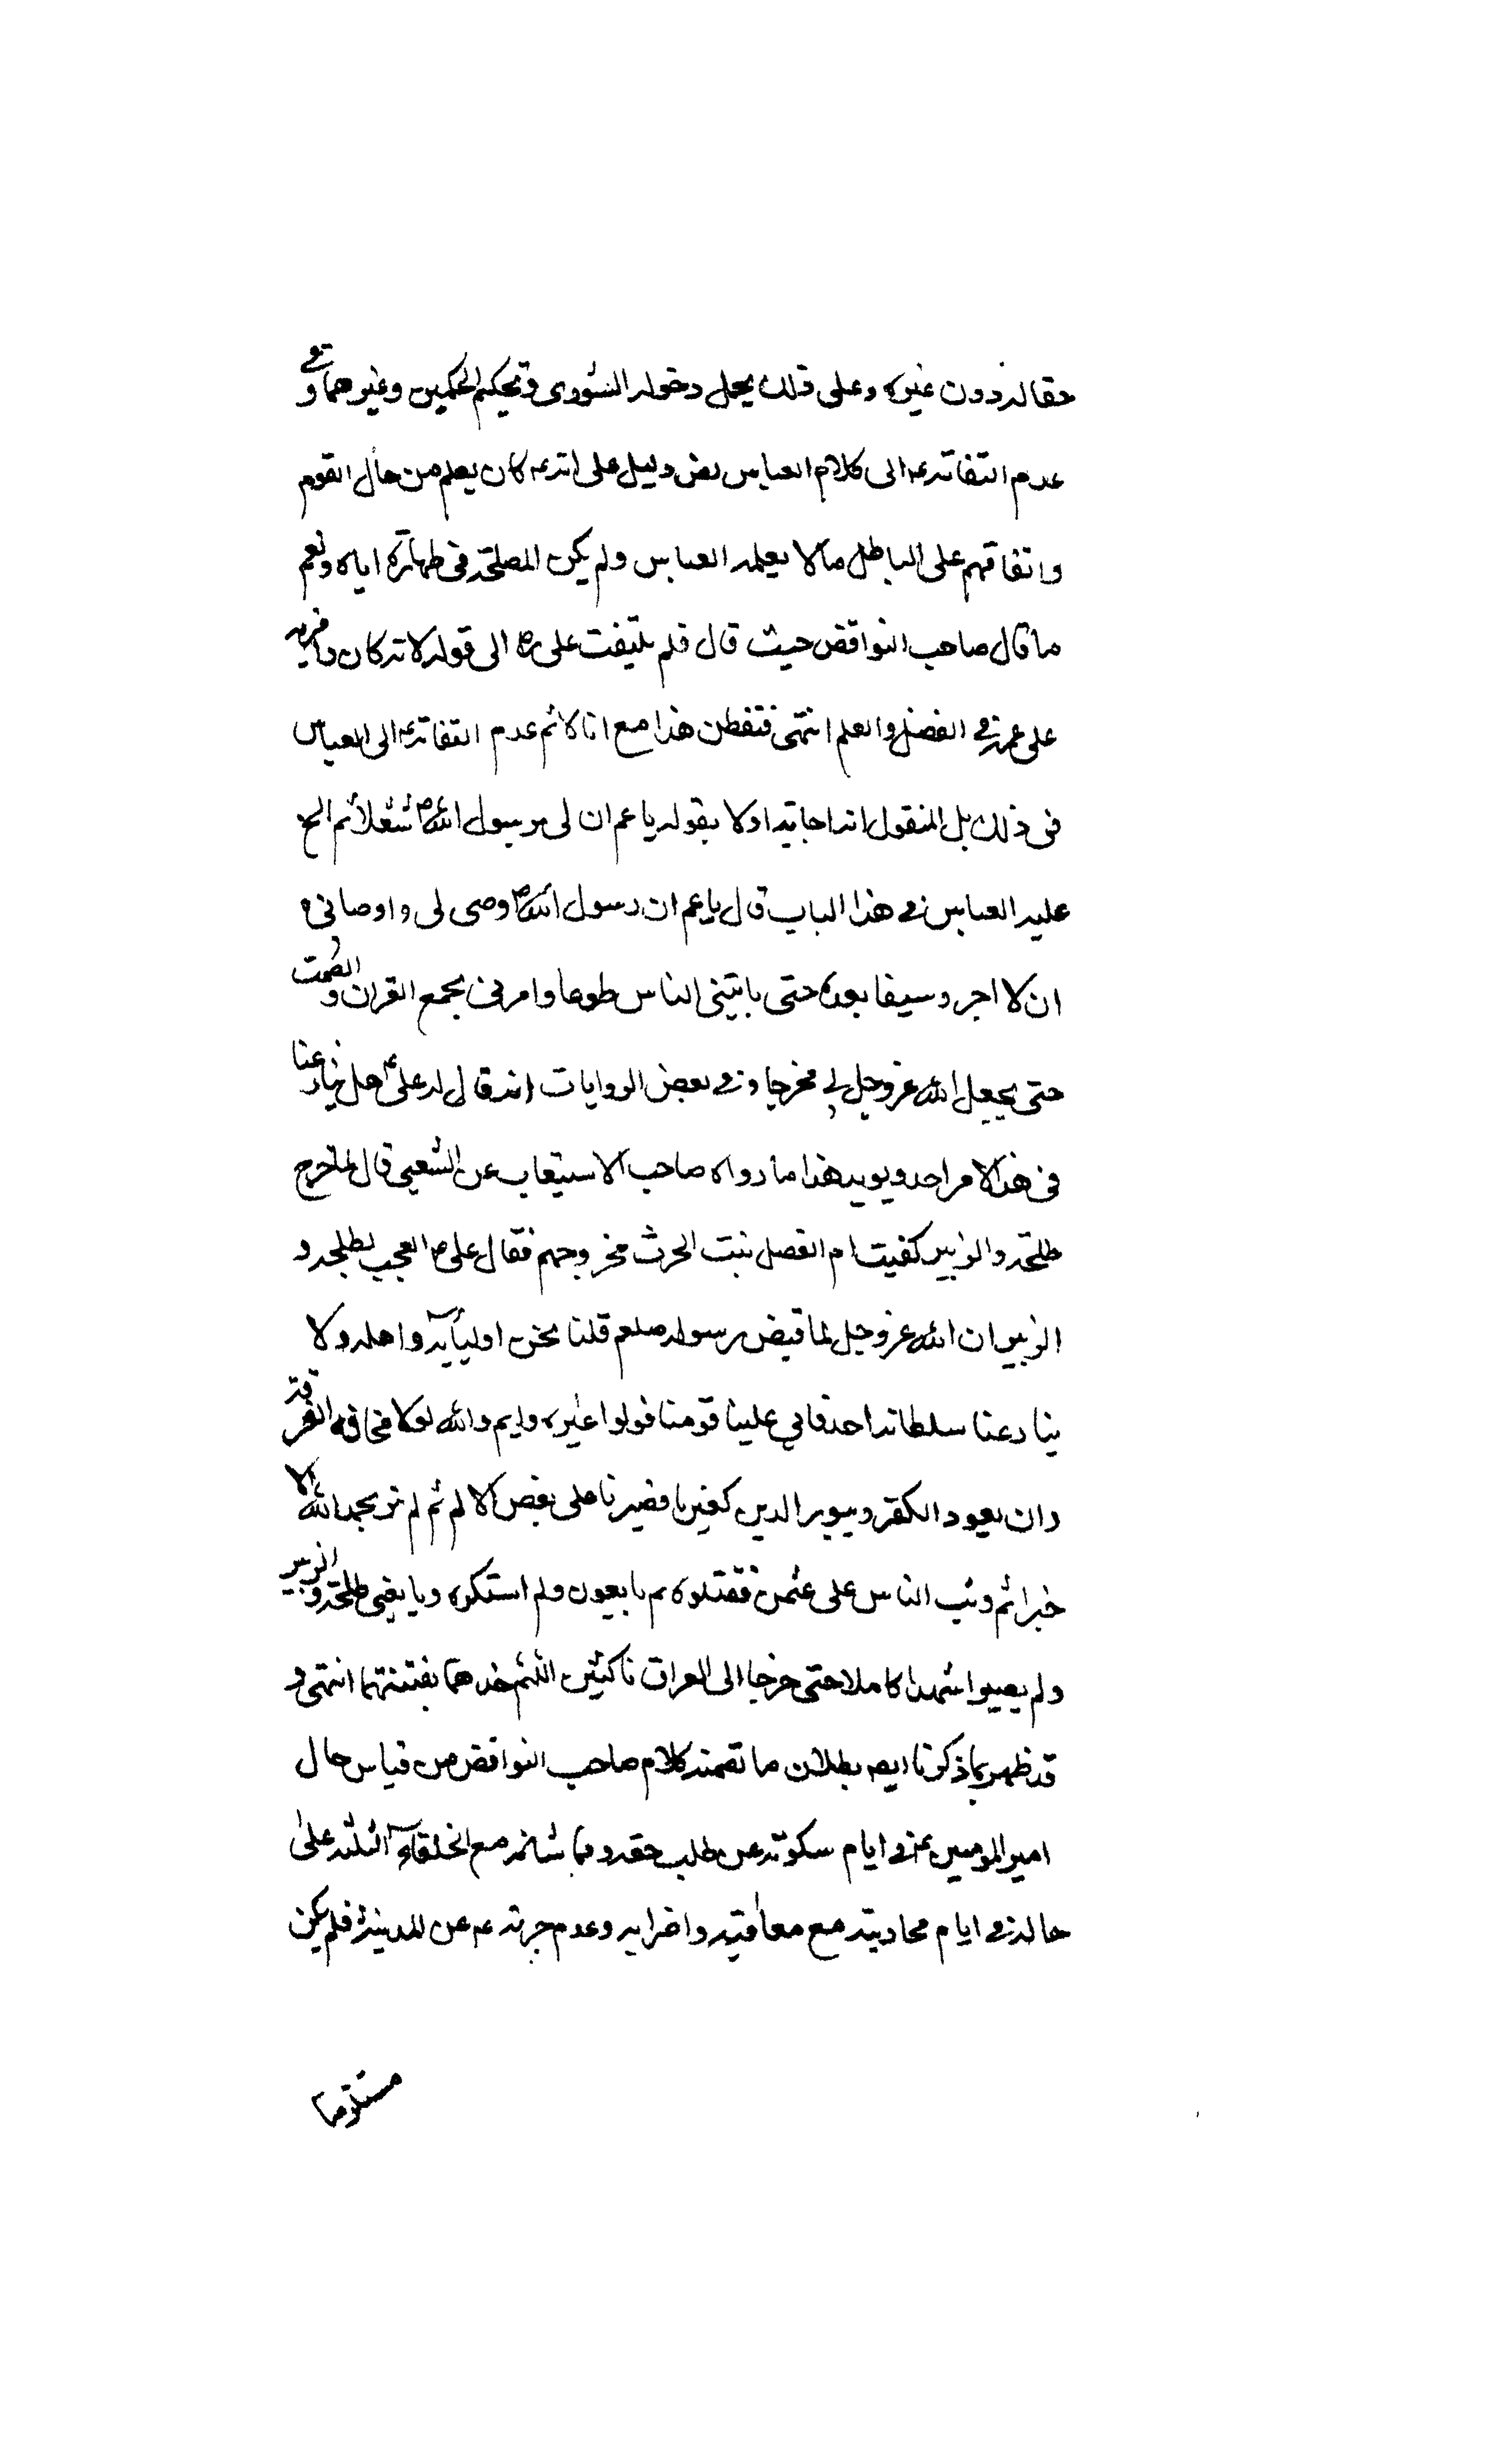 حقا له دون غيره وعلى ذلك يحمل دخوله الشورى وتحكيم الحكمين وغيرهما وفي
عدم التفاته ع الى كلام العباس رض دليل على انه ع كان يعلم من حال القوم
واتفاقهم على الباطل مالا يعلمه العباس ولم يكن المصلحة في اظهاره اياه ونعم
ما قال صاحب النواقض حيث قال فلم يلتفت على رض الى قوله لانه كان
على عمه في الفضل والعلم انتهى فتفطن هذا مع انا لانم عدم التفاته ع الى العباس
في ذلك بل المنقول انه اجابه اولا بقوله يا عم ان لى برسول الله ص شغلا ثم الح
عليه العباس في هذا الباب قال يا عم ان رسول الله ص وصى لى واوصانى
ان لا اجرد سيفا بعده حتى ياتينى الناس طوعا وامرنى بجمع القران والصمت
حتى يجعل الله عز وجل لي مخرجا وفي بعض الروايات انه قال له على ع هل ينازعنا
في هذا الامر احد ويويد هذا ما رواه صاحب الاستيعاب عن الشعبى قال لما خرج
طلحة والزبير كتبت ام الفضل بنت الحرث بخروجهم فقال على ع العجب لطلحة و
الزبير ان الله عز وجل لما قبض رسوله صلعم قلنا نحن اوليآيه واهله ولا
ينازعنا سلطانه احد فابي علينا قومنا فولوا غيره وايم والله لولا مخافة الفرقة
وان يعود الكفر ويبور الدين لغيرنا فصبرنا على بعض الالم ثم لم نر بحمد الله الا
خيرا ثم وثب الناس على عثمن فقتلوه ثم بايعون ولم استكره وبايعنى طلحة والزبير
ولم يصبرا شهرا كاملا حتى خرجا الى العراق ناكثين اللهم خذهما بفتنتهما انتهى و
قد ظهر بما ذكرنا ايضه بطلان ما تضمنه كلام صاحب النواقض من قياس حال
امير المومنين ع في ايام سكوته عن طلب حقه ومماشاته مع الخلفآء الثلثة على
حاله في ايام محاربته مع معاوية واضرابه وعدم هجرته ع عن المدينة فلم يكن
مستلزما